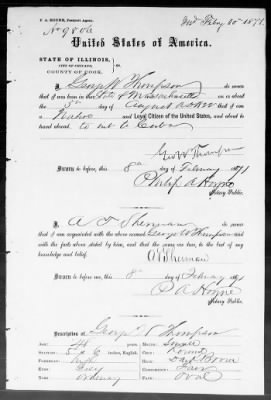 P. A. HOYNE, Passport Agent.
Feby 10 1871
No 9806
United States of America.
STATE OF ILLINOIS,
CITY OF CHICAGO, ss.
COUNTY OF COOK.
I, George W Thompson do swear
that I was born in the State of Massachusetts on the
5th day of August that I am a
Native and Loyal Citizen of the United States, and about
to travel to Cuba
Geo W Thompson
Sworn to before me, this 8th day of February 1871
Philip A Hoyne
Notary Public.
I, A T Sherman do swear
that I am acquainted with the above named George W Thompson and
with the facts above stated by him, and that the same are true, to the best of my
knowledge and belief.
A T Sherman
Sworn to before me, this 8th day of February 1871
P. A Hoyne
Notary Public.
Description of George W Thompson
Age,
Stature, 5 feet 6 inches, English.
Forehead, High
Eyes, Grey
Nose, Ordinary
Mouth,
Chin, Round
Hair, Dark Brown
Complexion, Fair
Face, Oval